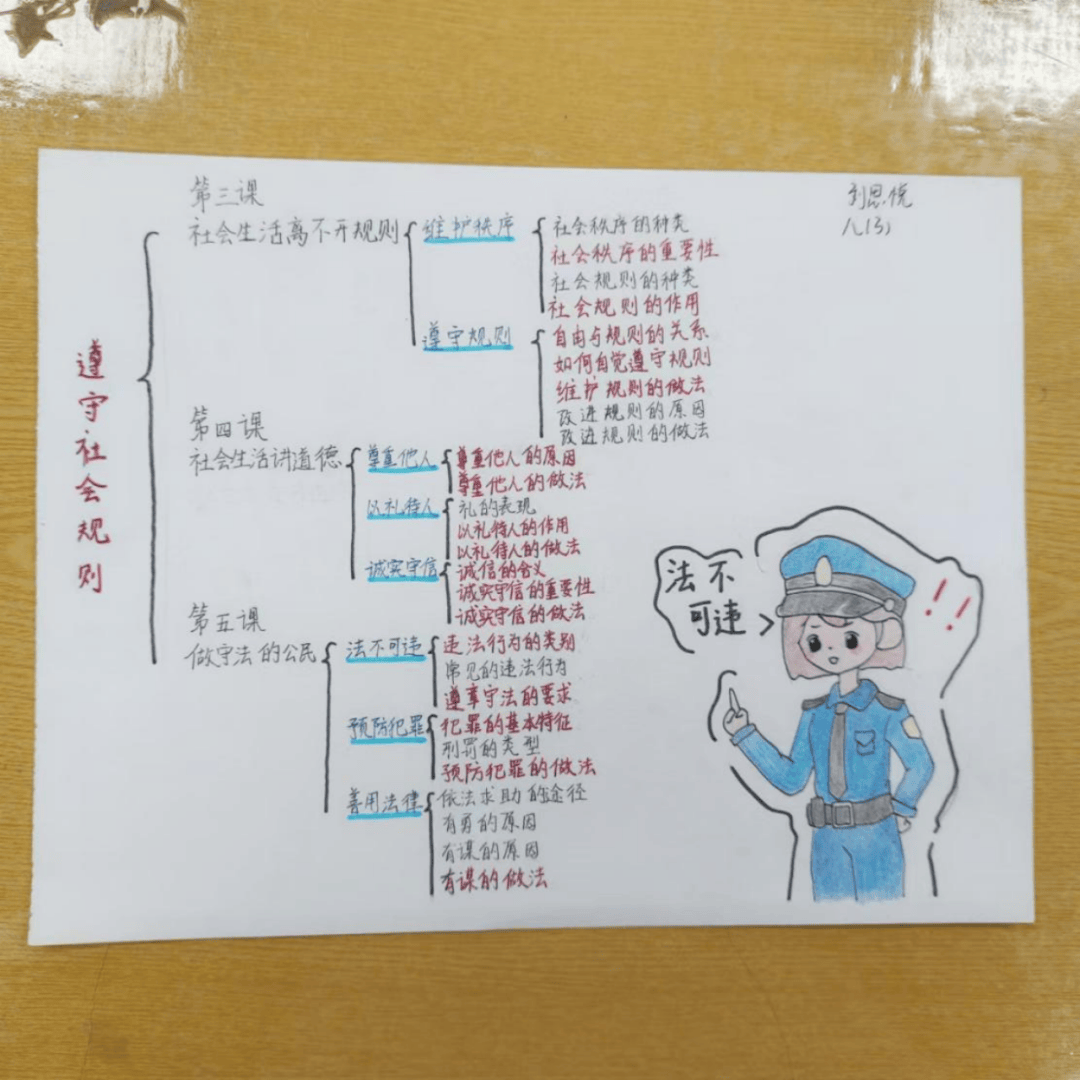 刘思悦
八(3)
遵守社会规则
第三课
社会生活离不开规则
维护秩序
社会秩序的种类
社会秩序的重要性
社会规则的种类
社会规则的作用
遵守规则
自由与规则的关系
如何自觉遵守规则
维护规则的做法
改进规则的原因
改进规则的做法
第四课
社会生活讲道德
尊重他人
尊重他人的原因
尊重他人的做法
以礼待人
礼的表现
以礼待人的作用
以礼待人的做法
诚实守信
诚信的含义
诚实守信的重要性
诚实守信的做法
第五课
做守法的公民
法不可违
违法行为的类别
常见的违法行为
遵章守法的要求
预防犯罪
犯罪的基本特征
刑罚的类型
预防犯罪的做法
善用法律
依法求助的途径
有勇的原因
有谋的原因
有谋的做法
法不
可违
!!